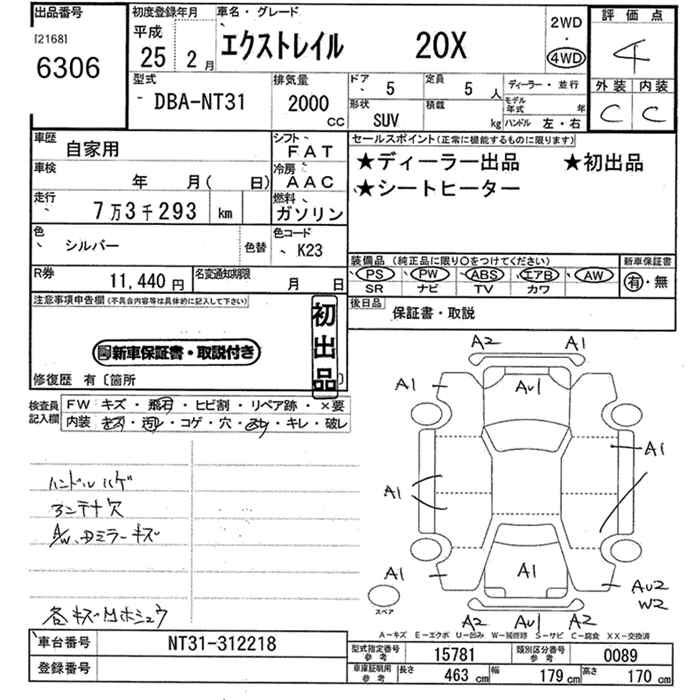 出品番号
[2168]
6306
初度登録年月
平成
25 2月
車名・グレード
エクストレイル 20X
2WD
・
4WD
評価点
4
外装 内装
C C
型式
DBA-NT31
排気量
2000
CC
ドア
5
定員
5人
ディーラー・並行
形状
SUV
積載
kg
モデル年式
年
ハンドル 左・右
車歴
自家用
シフト
FAT
車検
年 月( 日)
冷房
AAC
走行
7万3千293 km
燃料
ガソリン
色
シルバー
色替
色コード
K23
R券
11,440円
名変通知期限
月 日
セールスポイント(正常に機能するものに限ります)
★ディーラー出品 ★初出品
★シートヒーター
装備品(純正品に限り○をつけてください)
PS ・ PW ・ ABS ・ エアB ・ AW
SR ナビ TV カワ
新車保証書
有・無
後日品
保証書・取説
注意事項申告欄(不具合内容等は具体的に記入して下さい)
初出品
新車保証書・取説付き
修復歴 有〔箇所 〕
検査員記入欄
FW キズ・飛石・ヒビ割・リペア跡・×要
内装 キズ・汚れ・コゲ・穴・スレ・キレ・破レ
ハンドルハゲ
アンテナ欠
AW、Dミラーキズ
各キズ凹ホシュウ
A2 A1
A1 AU1
A1
A1
A1 A1
AU2
W2
スペア
A2 AU1 A2
A-キズ E-エクボ U-凹み W-補修跡 S-サビ C-腐食 XX-交換済
車台番号
NT31-312218
登録番号
型式指定番号
参考
15781
類別区分番号
参考
0089
車庫証明用
参考
長さ
463 cm
幅
179 cm
高さ
170 cm